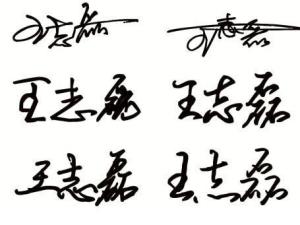 王志磊 王志磊
王志磊 王志磊
王志磊 王志磊